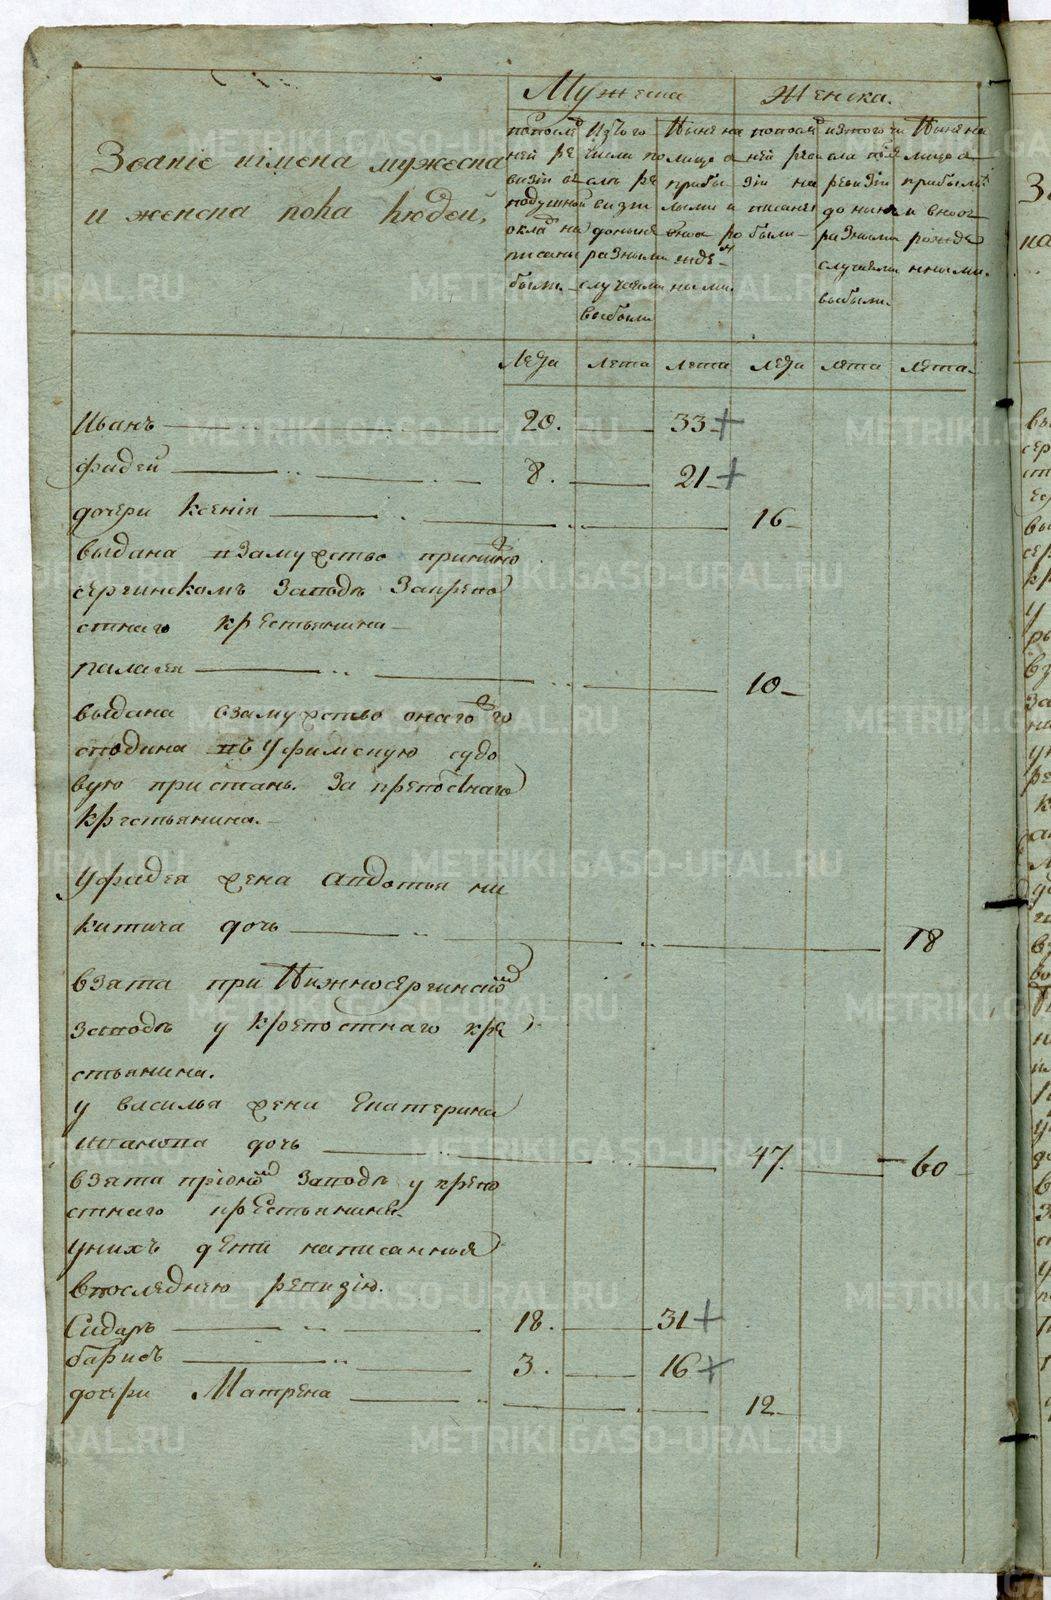 Мужеска
Женска.
Звание иимена мужеска
и женска пола людей,
попослѣд
ней ре
визіи въ
подушной
окладъ на
писаны
были.
Изтого
числа по
слѣ ре
визіи
доныне
разными
случаями
выбыли
Ныне на
лицо с
прибы
лыми и
вновь ро
жде
ными.
попослѣд
ней реви
зіи на
писаны
были
изтого чи
сла послѣ
ревизіи
доныне
разными
случаями
выбыли.
Ныне на
лицо с
прибылы
и вновь
рожде
нными.
Лета лета лета лета лета лета
Иванъ 20. 33
фадей 8. 21
дочери ксенія 16
выдана взамужство принижно
сергинскомъ заводѣ закрепо
стнаго крестьянина
палагея 10
выдана взамужство онагожго
сподина въ Уфимскую судо
вую пристань. за крепостнаго
крестьянина.
Уфадея жена авдотья ни
китина дочь 18
взята при Нижносергинскомъ
заводѣ у крепостнаго кре
стьянина.
у василья жена екатерина
иванова дочь 47. 60
взята приономъ заводѣ у крепо
стнаго крестьянина
унихъ дети написанныя
впоследнею ревизію.
Сидаръ 18. 31
барисъ 3. 16
дочери Матрена 12
METRIKI.GASO-URAL.RU